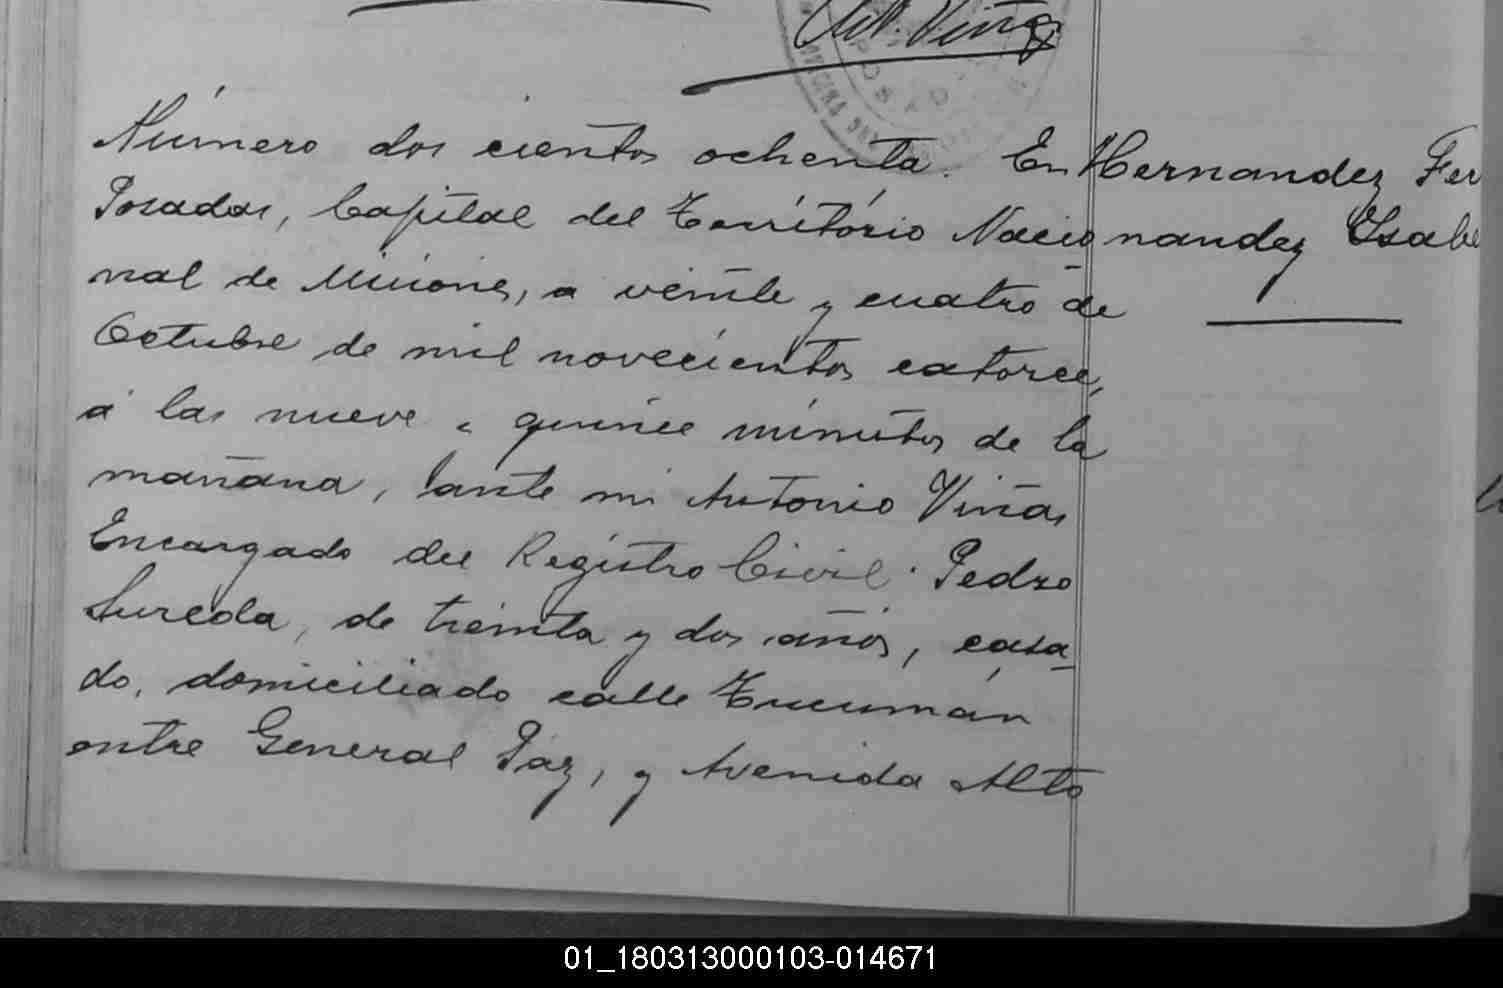 Ant. Viñas
POSADAS
OFICINA DEL
Número dos cientos ochenta. En
Posadas, Capital del Território Nacio
nal de Misiones, a veinte y cuatro de
Octubre de mil novecientos catorce,
á las nueve quince minutos de la
mañana, ante mi Antonio Viñas
Encargado del Registro Civil. Pedro
Sureda, de treinta y dos años, casa-
do, domiciliado calle Tucumán
entre General Paz, y Avenida Alto
Hernandez Fer
nandez Ysabe
01_180313000103-014671